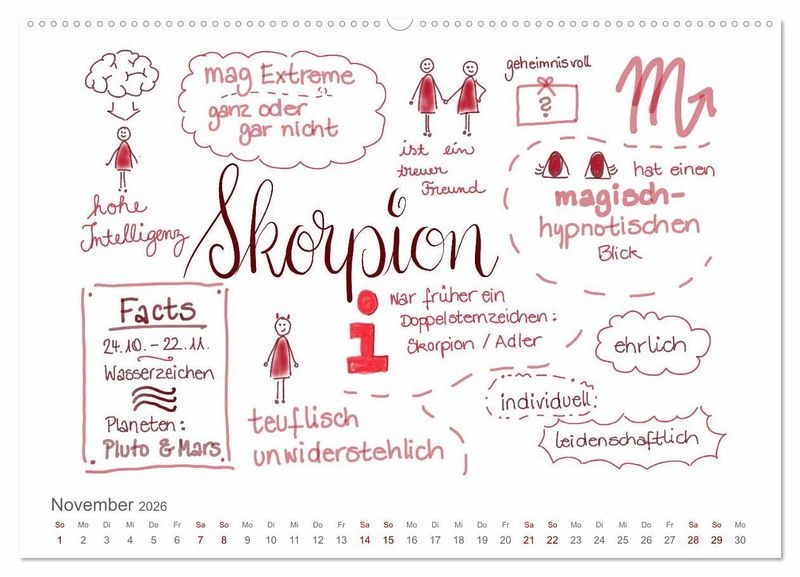 mag Extreme
ganz oder
gar nicht
geheimnisvoll
?
ist ein
treuer
Freund
hohe
Intelligenz
hat einen
magisch-
hypnotischen
Blick
Skorpion
Facts
24.10. - 22.11.
Wasserzeichen
Planeten:
Pluto & Mars
i
war früher ein
Doppelsternzeichen:
Skorpion / Adler
ehrlich
individuell
leidenschaftlich
teuflisch
unwiderstehlich
November 2026
So Mo Di Mi Do Fr Sa So Mo Di Mi Do Fr Sa So Mo Di Mi Do Fr Sa So Mo Di Mi Do Fr Sa So Mo
1 2 3 4 5 6 7 8 9 10 11 12 13 14 15 16 17 18 19 20 21 22 23 24 25 26 27 28 29 30